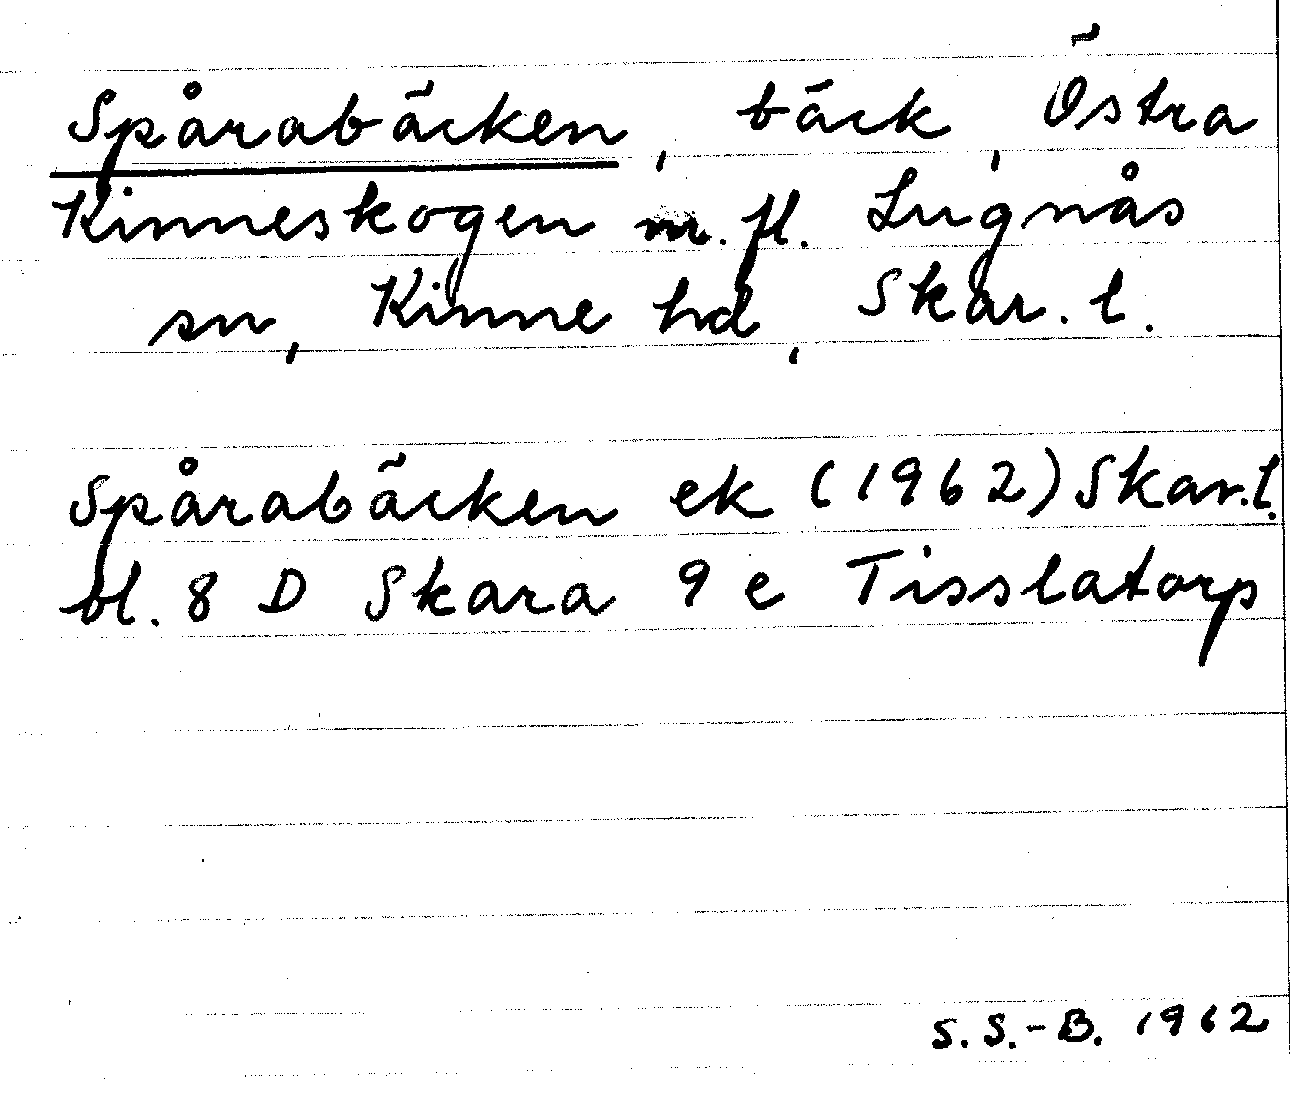 Spårabäcken, bäck, Östra
Kinneskogen m. fl. Lugnås
sn, Kinne hd, Skar. l.
Spårabäcken ek (1962) Skar. l.
bl. 8 D Skara 9 e Tisslatorp
S. S.-B. 1962